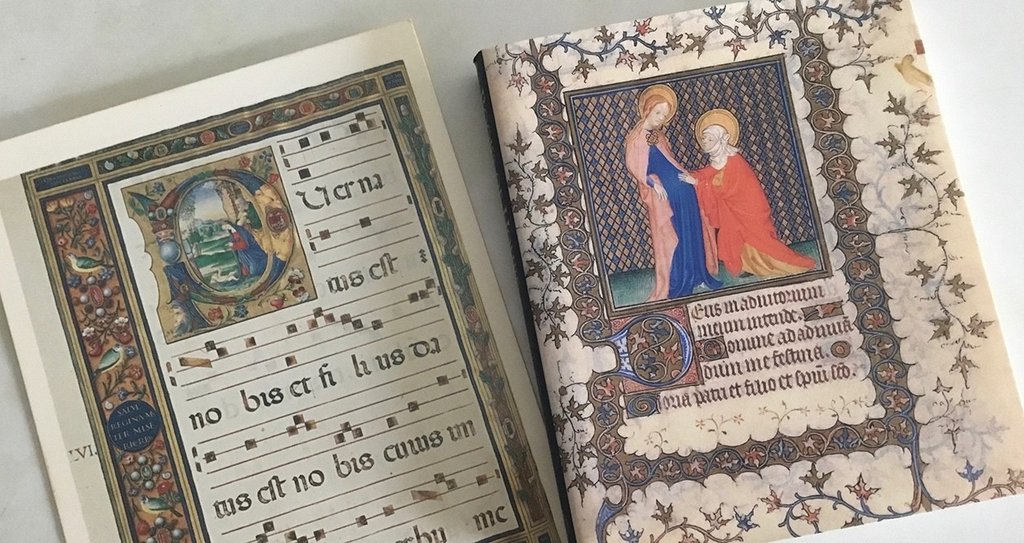 Uer na
tus est
no bis et fi li us da
tus est no bis cuius im
me
SALVE
REGINA M
TER MISE
RICORD
LVI
Deus in adiutorium
meum intende.
Domine ad adiuua
dum me festina.
Gloria patri et filio et spiui sco